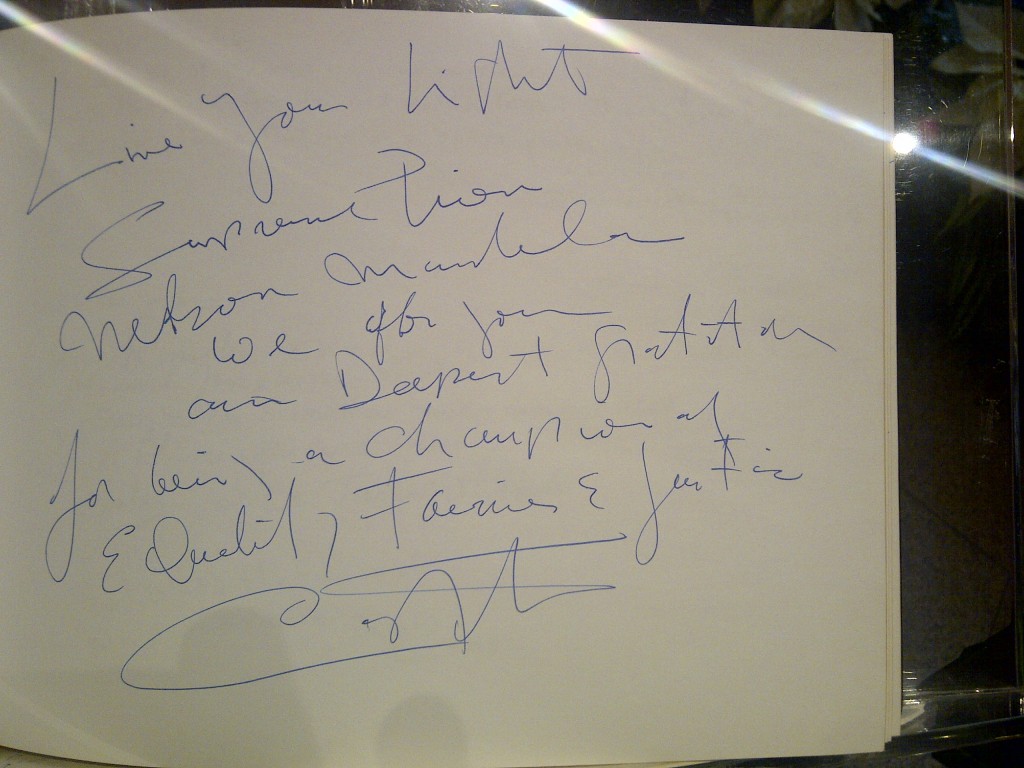 Line your light
Supreme Lion
Nelson Mandela
we offer you
our Deepest gratitude
for being a champion of
Equality, Fairness & Justice